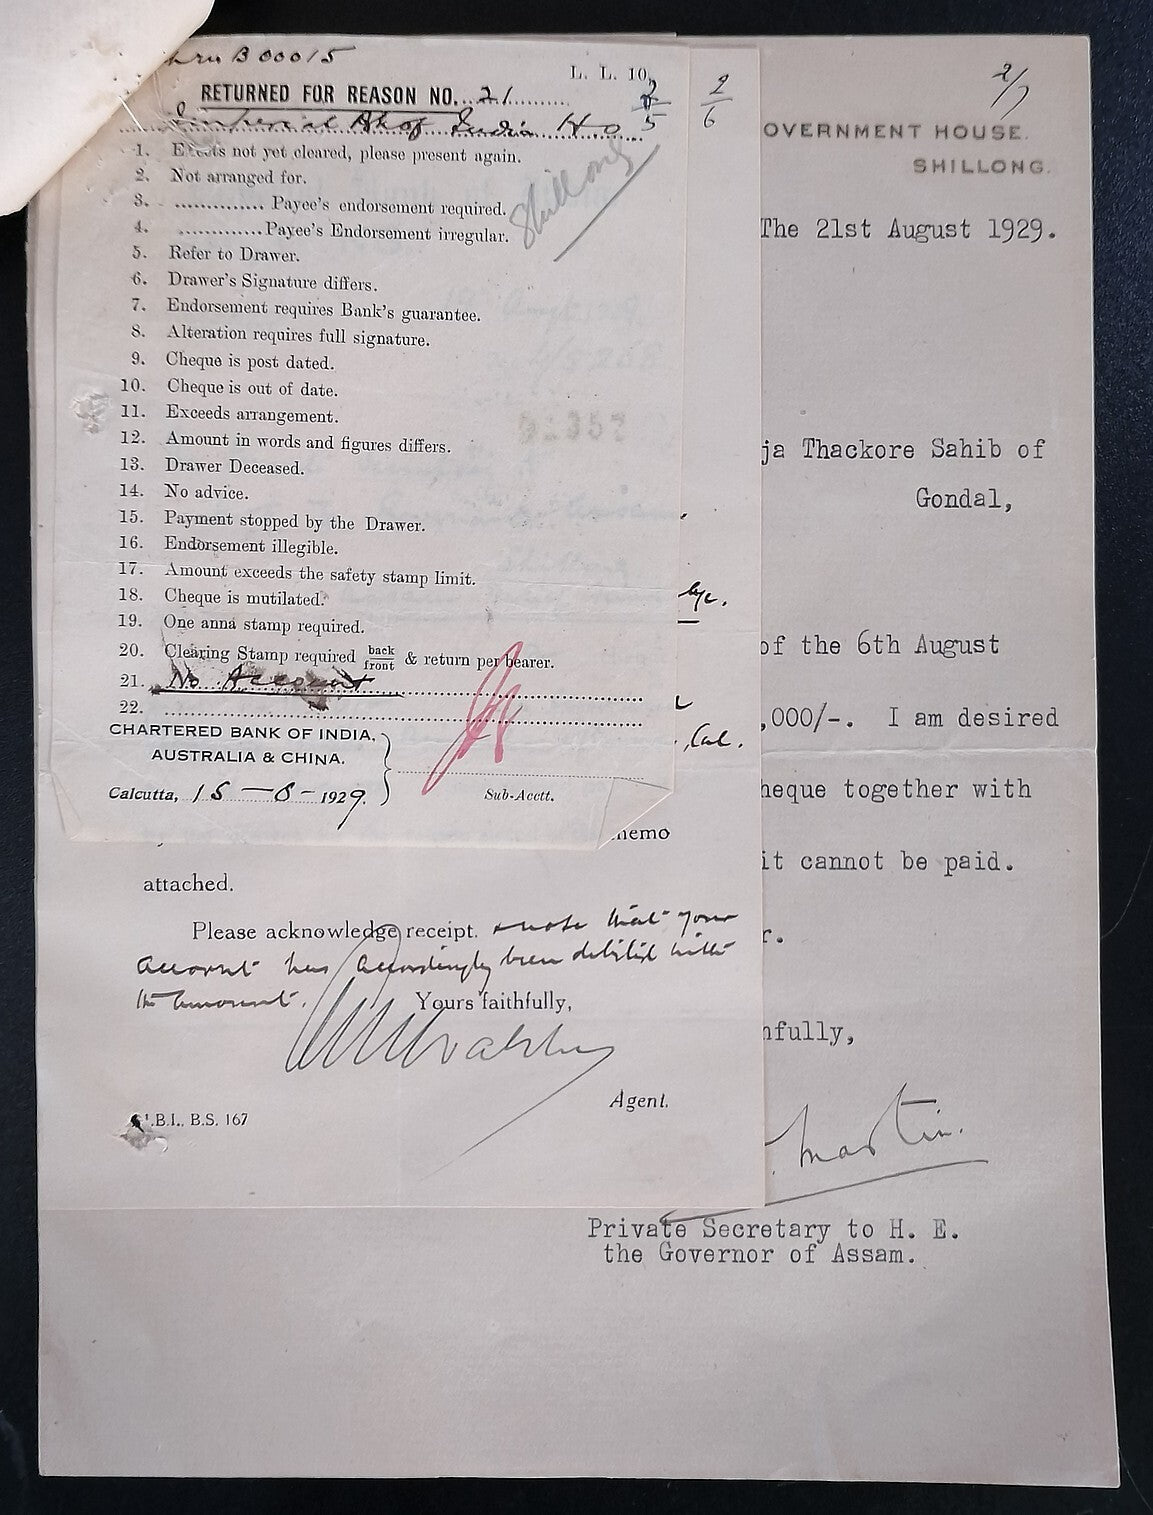 B 00015
L. L. 10.
RETURNED FOR REASON NO. 21
Imperial Bk of India H.O.
Shillong
1. Effects not yet cleared, please present again.
2. Not arranged for.
3. .............. Payee's endorsement required.
4. ............. Payee's Endorsement irregular.
5. Refer to Drawer.
6. Drawer's Signature differs.
7. Endorsement requires Bank's guarantee.
8. Alteration requires full signature.
9. Cheque is post dated.
10. Cheque is out of date.
11. Exceeds arrangement.
12. Amount in words and figures differs.
13. Drawer Deceased.
14. No advice.
15. Payment stopped by the Drawer.
16. Endorsement illegible.
17. Amount exceeds the safety stamp limit.
18. Cheque is mutilated.
19. One anna stamp required.
20. Clearing Stamp required back/front & return per bearer.
21. No Account
22.
CHARTERED BANK OF INDIA,
AUSTRALIA & CHINA.
Calcutta, 15-8-1929.
Sub-Acctt.
2/6
Cal.
memo
attached.
Please acknowledge receipt. & note that your
account has accordingly been debited with
the amount.
Yours faithfully,
Agent.
B.I., B.S. 167
2/7
OVERNMENT HOUSE.
SHILLONG.
The 21st August 1929.
ja Thackore Sahib of
Gondal,
of the 6th August
,000/-. I am desired
heque together with
it cannot be paid.
r.
hfully,
Martin.
Private Secretary to H. E.
the Governor of Assam.